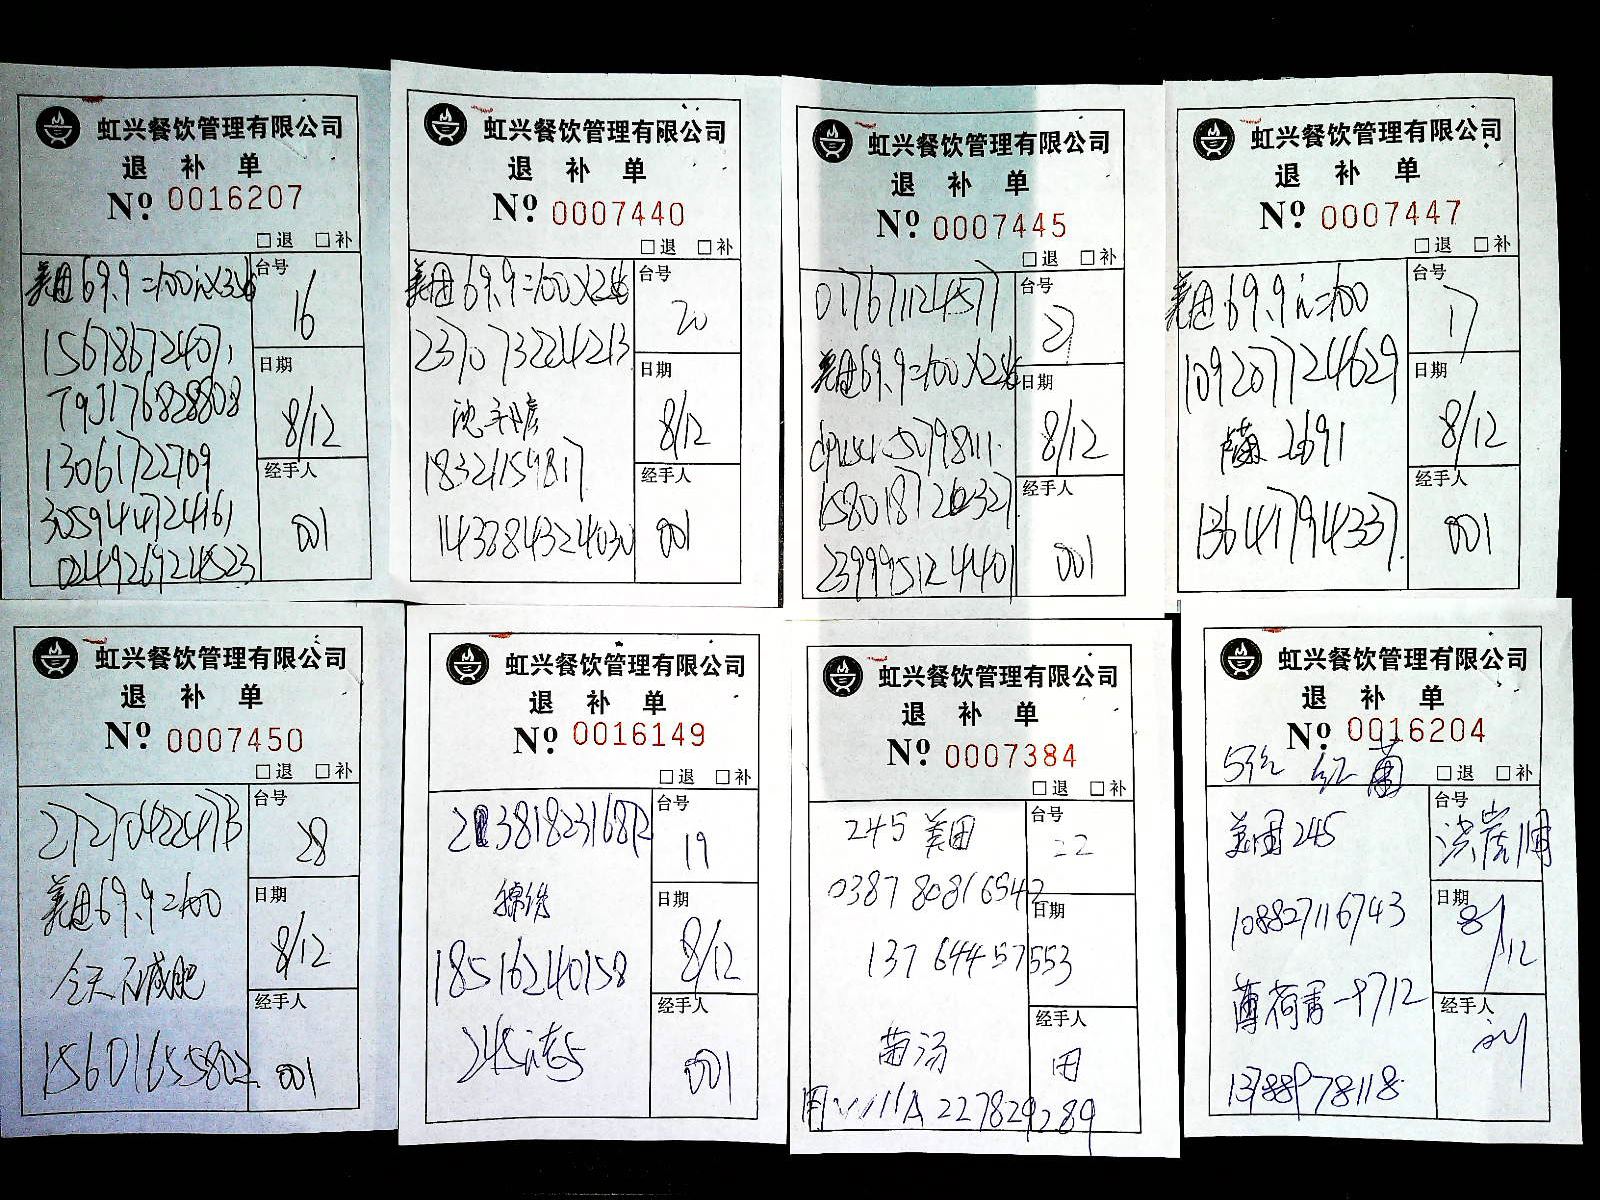 虹兴餐饮管理有限公司
退 补 单
Nº 0016207
□退 □补
美团69.9=100元×3张
台号
16
15678672407,
日期
8/12
13061722709
经手人
001
3059444724161
0244926924523
虹兴餐饮管理有限公司
退 补 单
Nº 0007440
□退 □补
美团69.9=100×2张
台号
20
2370732224213
日期
8/12
18321154817
经手人
001
1438843224030
虹兴餐饮管理有限公司
退 补 单
Nº 0007445
□退 □补
017671124577
台号
27
美团69.9=100×2张
日期
8/12
经手人
001
2399951244401
虹兴餐饮管理有限公司
退 补 单
Nº 0007447
□退 □补
美团69.9元=100
台号
17
109207724629
日期
8/12
2691
经手人
001
13641794337.
虹兴餐饮管理有限公司
退 补 单
Nº 0007450
□退 □补
台号
28
美团69.9=100
日期
8/12
今天不减肥
经手人
001
15601655802
虹兴餐饮管理有限公司
退 补 单
Nº 0016149
□退 □补
台号
19
日期
8/12
18516240158
经手人
001
虹兴餐饮管理有限公司
退 补 单
Nº 0007384
□退 □补
245 美团
台号
二2
038780816542
日期
13764457553
经手人
菌汤
用
虹兴餐饮管理有限公司
退 补 单
Nº 0016204
红菌
□退 □补
台号
美团245
108827116743
日期
8/12
经手人
刘
13788978118